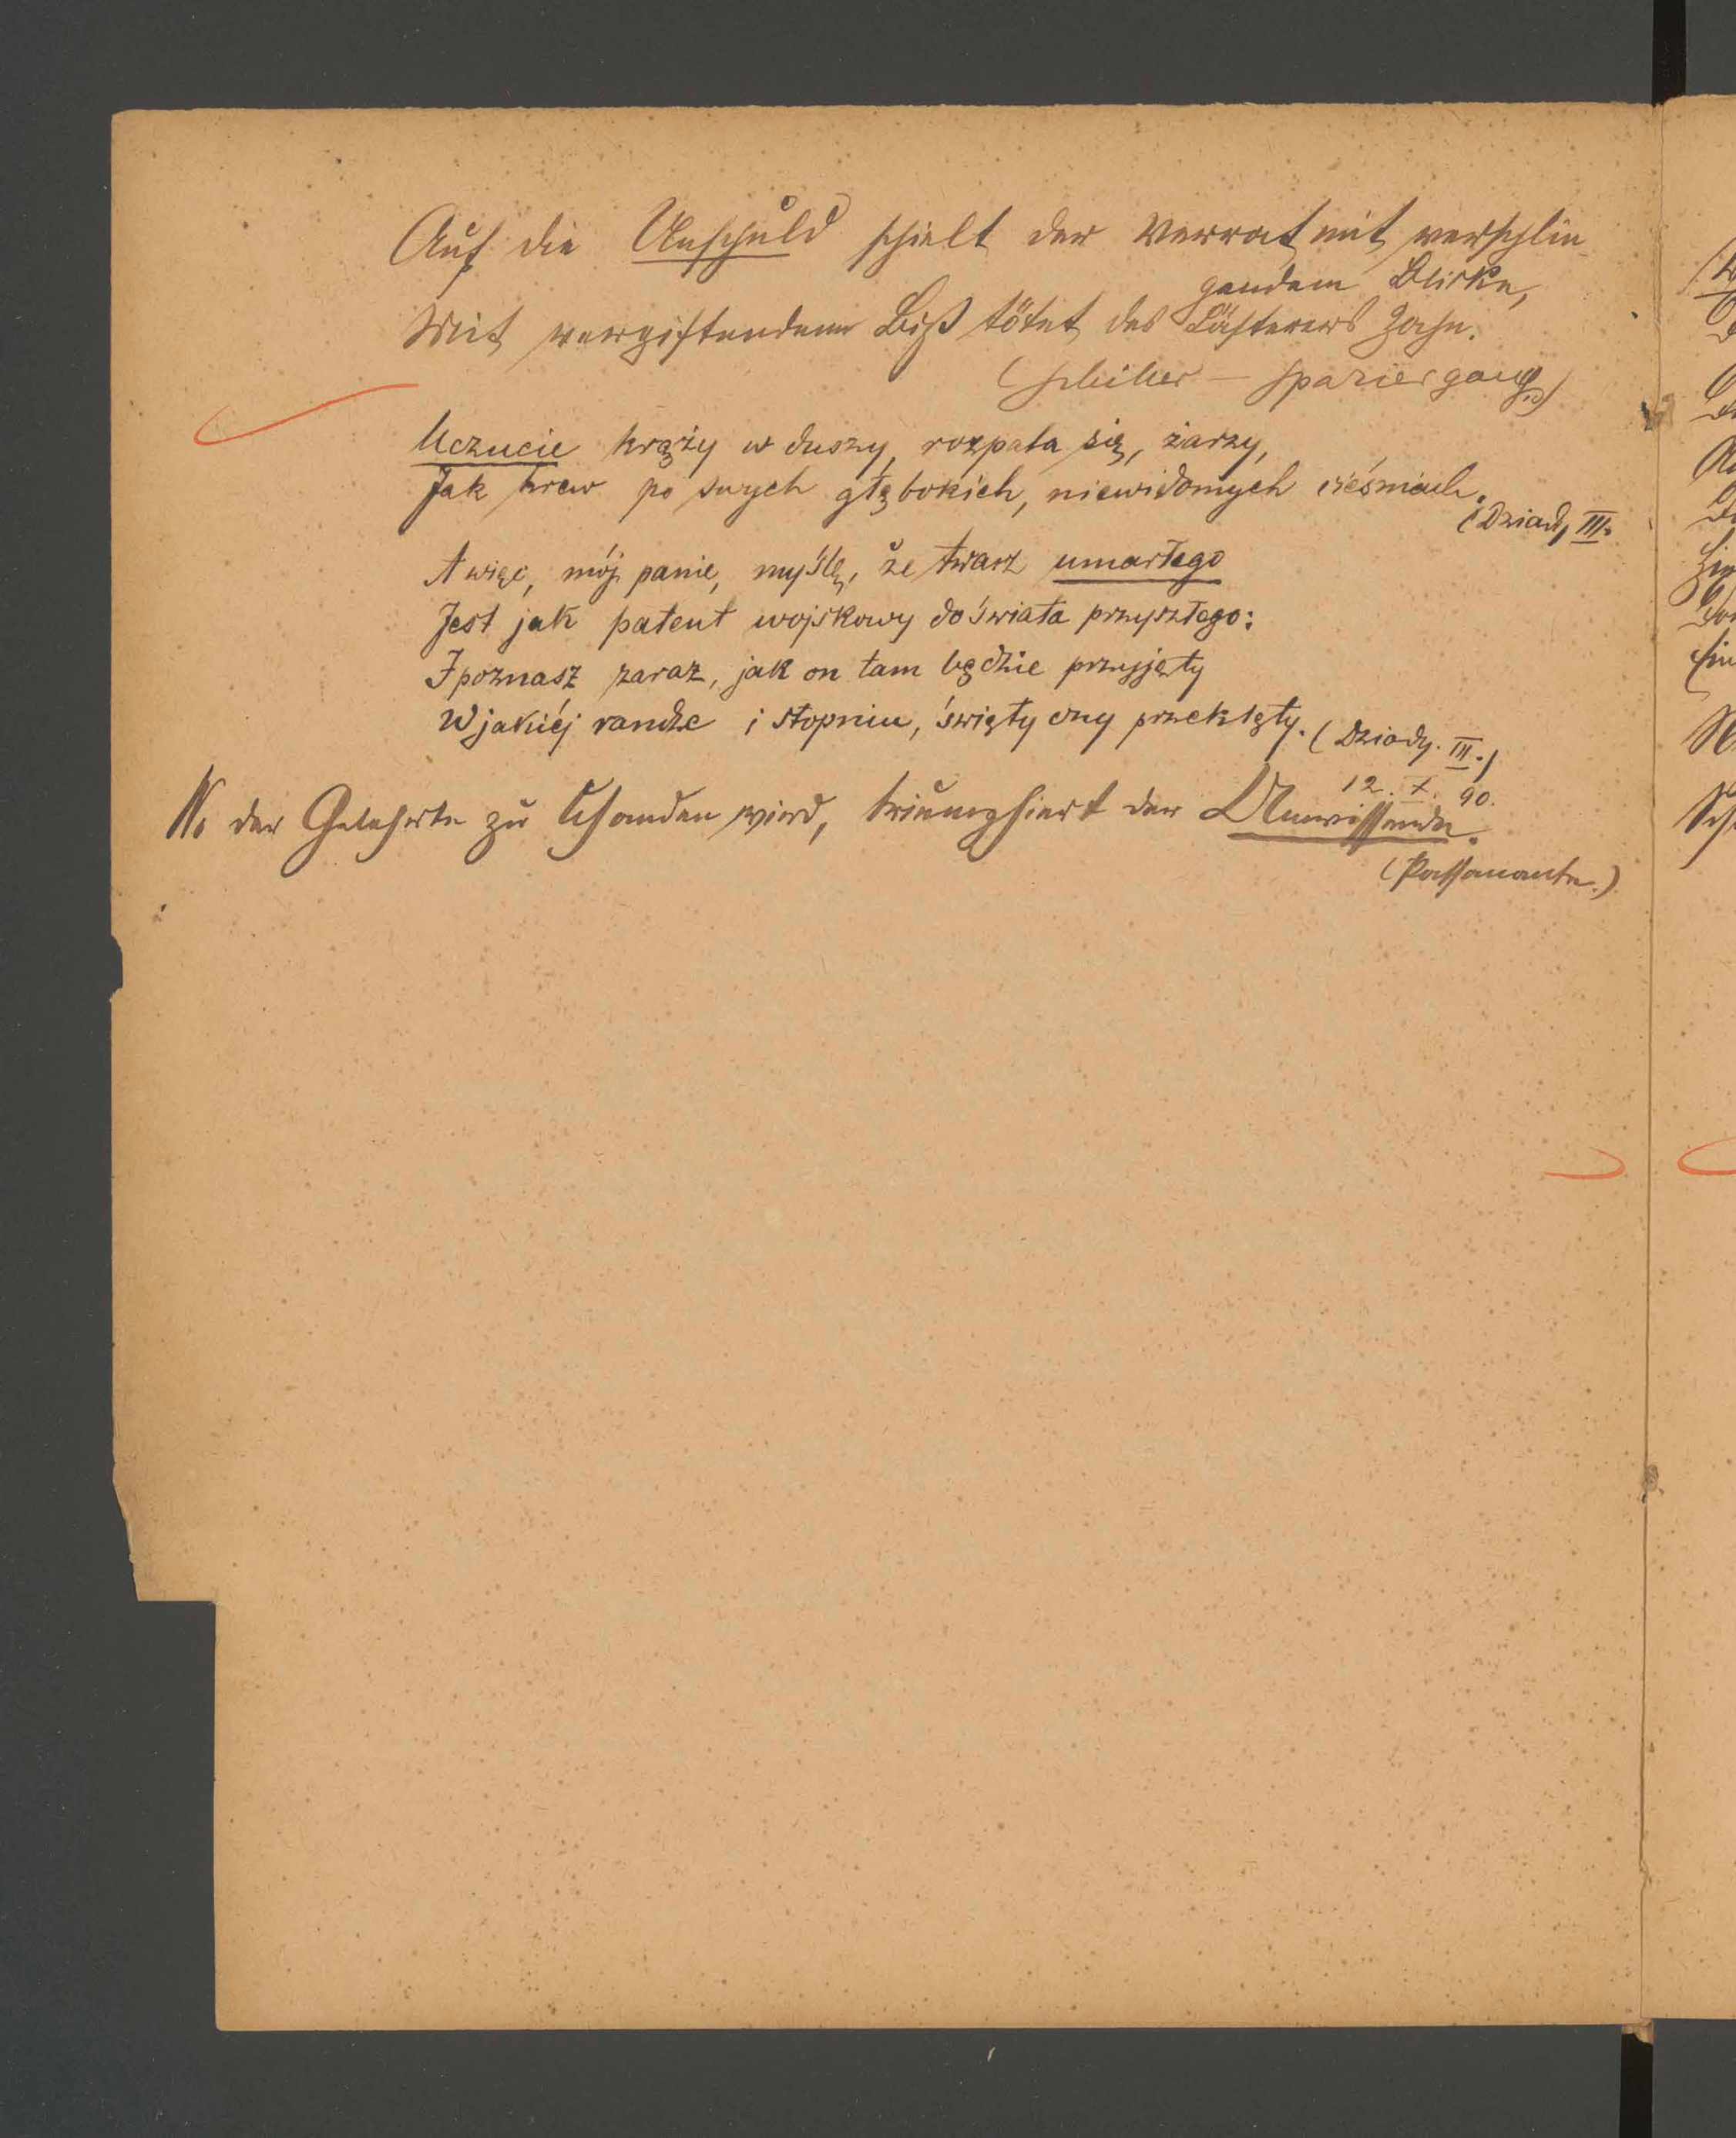 Auf die Unschuld schielt der Verrat mit verschlin-
gendem Blicke,
Mit vergiftendem Biß tötet des Lästerers Zahn.
(Schiller — Spaziergang)
Uczucie krąży w duszy, rozpala się, żarzy,
Jak krew po swych głębokich, niewidomych cieśniach.
(Dziady III.
A więc, mój panie, myślę, że twarz umarłego
Jest jak patent wojskowy do świata przyszłego:
I poznasz zaraz, jak on tam będzie przyjęty
W jakiéj randze i stopniu, święty czy przeklęty. (Dziady. III.)
12. X. 90.
Wo der Gelehrte zu Schanden wird, triumphiert der Unwissende.
(Passanante.)